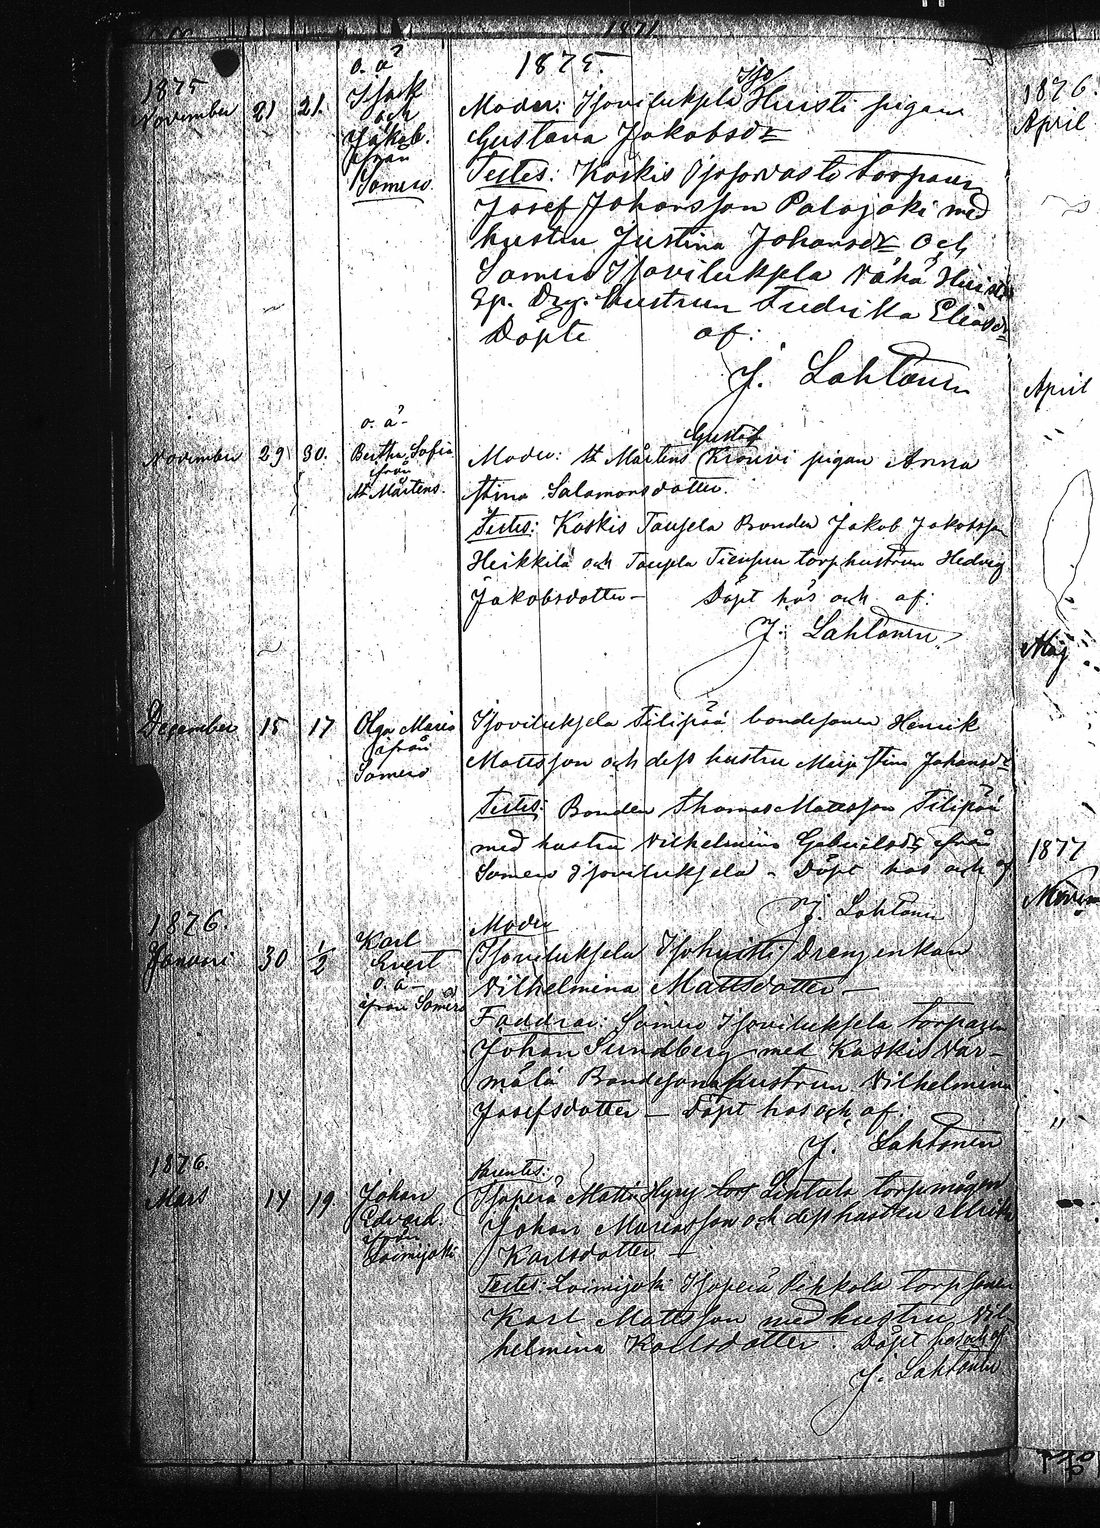 1871
1875.
1875
November 21 21.
o. ä
Isak
och
Jakob.
från
Somero.
Iso
Moder: Isovilukpla Hursti pigan
Gustava Jakobsdr
Testes: Koskis Isosorvasto torparen
Josef Johansson Palojoki med
hustru Justina Johansdr och
Somero Isovilukpla Vähä
Ep. Drg. hustrun Fredrika Eliasdr
Döpte af:
J. Lahtonen
November 29 30.
o. ä
Bertha Sofia
från
St Mårtens.
Gustaf
Moder: St Mårtens Krouvi pigan Anna
Stina Salamonsdotter.
Testes: Koskis Taupela Bonden Jakob Jakobsson
Heikkilä och Taupla torphustrun Hedvig
Jakobsdotter – Döpt hos och af:
J. Lahtonen
December 15 17
Olga Maria
från
Somero
Isovilukjela Filipää bondesonen Henrik
Mattsson och dess hustru Maja Stina Johansdr
Testes: Bonden Thomas Mattsson Filipää
med hustru Vilhelmina Gabrielsdr från
Somero Isovilukjela – Döpt hos och af
J. Lahtonen
1876.
Januari 30 1/2
Karl
Evert
o. ä –
från Somero
Moder
Isovilukjela Isohursti Drengenkan
Vilhelmina Mattsdotter –
Faddrar: Somero Isovilukjela torparen
Johan Sundberg med Koskis Vär-
mälä Bondesonahustrun Vilhelmina
Josefsdotter – Döpt hos och af:
J. Lahtonen
1876.
Mars 14 19.
Johan
Edvard.
från
Loimijoki
Parentes:
Isoperä Matti Hyrsy Lehtula torpmågen
Johan Mariasson och dess hustru Ulrika
Karlsdotter –
Testes: Loimijoki Isoperä Pihkola torpsonen
Karl Mattsson med hustru Vil-
helmina Kallsdotter. Döpt hos och af
J. Lahtonen
1876.
April
April
Maj
1877
"